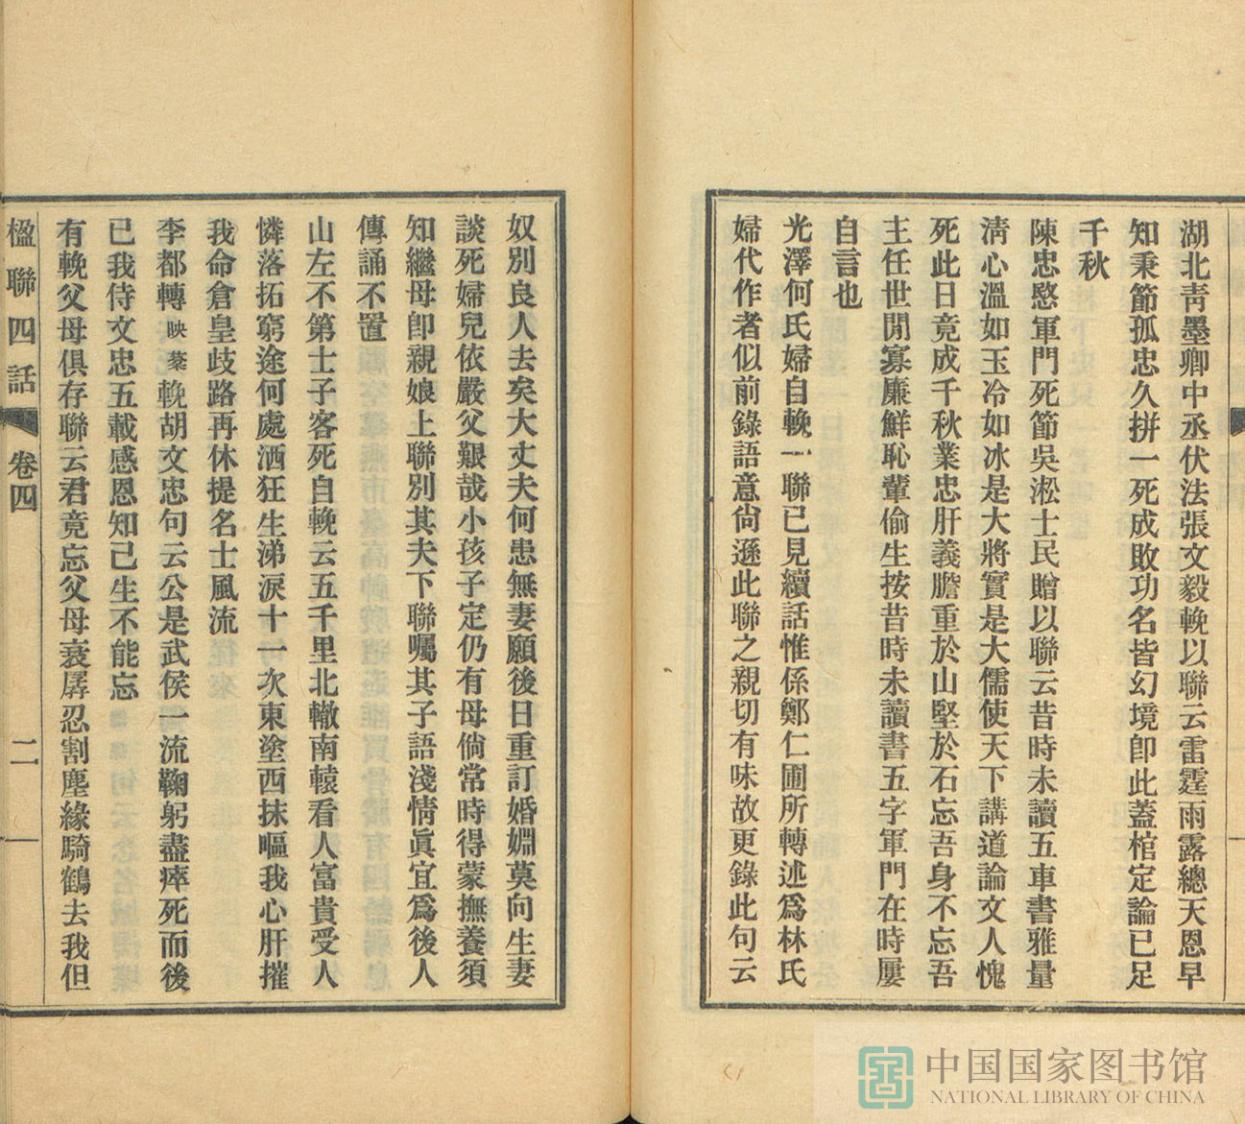 湖北靑墨卿中丞伏法張文毅輓以聯云雷霆雨露總天恩早
知秉節孤忠久拼一死成敗功名皆幻境卽此蓋棺定論已足
千秋
陳忠愍軍門死節吳淞士民贈以聯云昔時未讀五車書雅量
淸心溫如玉冷如冰是大將實是大儒使天下講道論文人愧
死此日竟成千秋業忠肝義膽重於山堅於石忘吾身不忘吾
主任世閒寡廉鮮恥輩偷生按昔時未讀書五字軍門在時屢
自言也
光澤何氏婦自輓一聯已見續話惟係鄭仁圃所轉述爲林氏
婦代作者似前錄語意尙遜此聯之親切有味故更錄此句云
奴別良人去矣大丈夫何患無妻願後日重訂婚姻莫向生妻
談死婦兒依嚴父艱哉小孩子定仍有母倘常時得蒙撫養須
知繼母卽親娘上聯別其夫下聯囑其子語淺情眞宜爲後人
傳誦不置
山左不第士子客死自輓云五千里北轍南轅看人富貴受人
憐落拓窮途何處洒狂生涕淚十一次東塗西抹嘔我心肝摧
我命倉皇歧路再休提名士風流
李都轉映棻輓胡文忠句云公是武侯一流鞠躬盡瘁死而後
已我侍文忠五載感恩知己生不能忘
有輓父母俱存聯云君竟忘父母衰孱忍割塵緣騎鶴去我但
楹聯四話 卷四 二
中国国家图书馆
NATIONAL LIBRARY OF CHINA